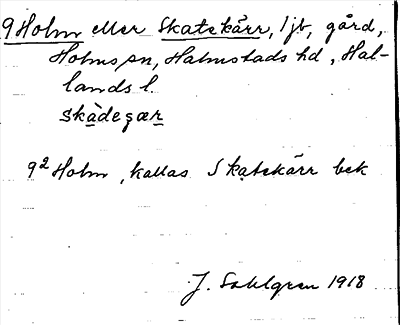 9 Holm eller Skatekärr, 1 jb, gård,
Holms sn, Halmstads hd, Hal-
lands l.
skàdeɡær
9² Holm, kallas Skatekärr bek
J. Sahlgren 1918